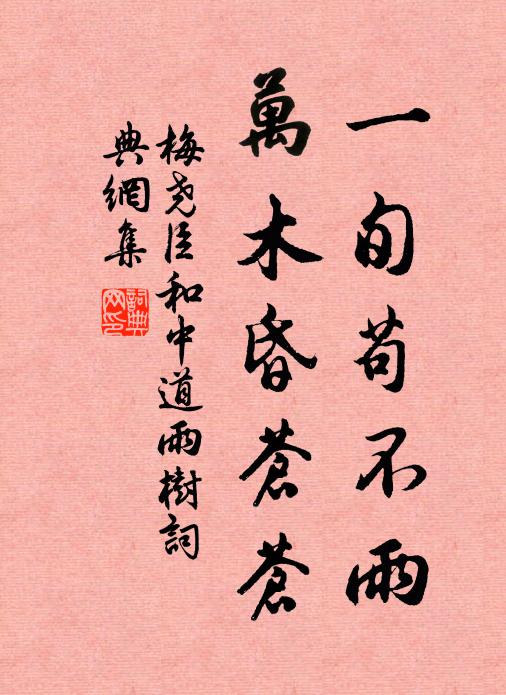 一旬苟不雨
萬木昏蒼蒼
梅尧臣和中道雨樹詞
典網集
詞典网印